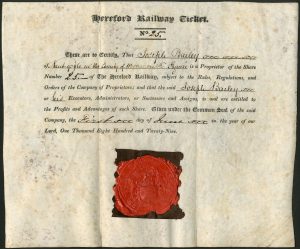 Hereford Railway Ticket.
No. 25.
These are to Certify, That Joseph Bailey
of in the County of Monmouth Esquire is a Proprietor of the Share
Number 25 of The Hereford Railway, subject to the Rules, Regulations, and
Orders of the Company of Proprietors; and that the said Joseph Bailey
his Executors, Administrators, or Successors and Assigns, is and are entitled to
the Profits and Advantages of such Share. Given under the Common Seal of the said
Company, the First day of June in the year of our
Lord, One Thousand Eight Hundred and Twenty-Nine.